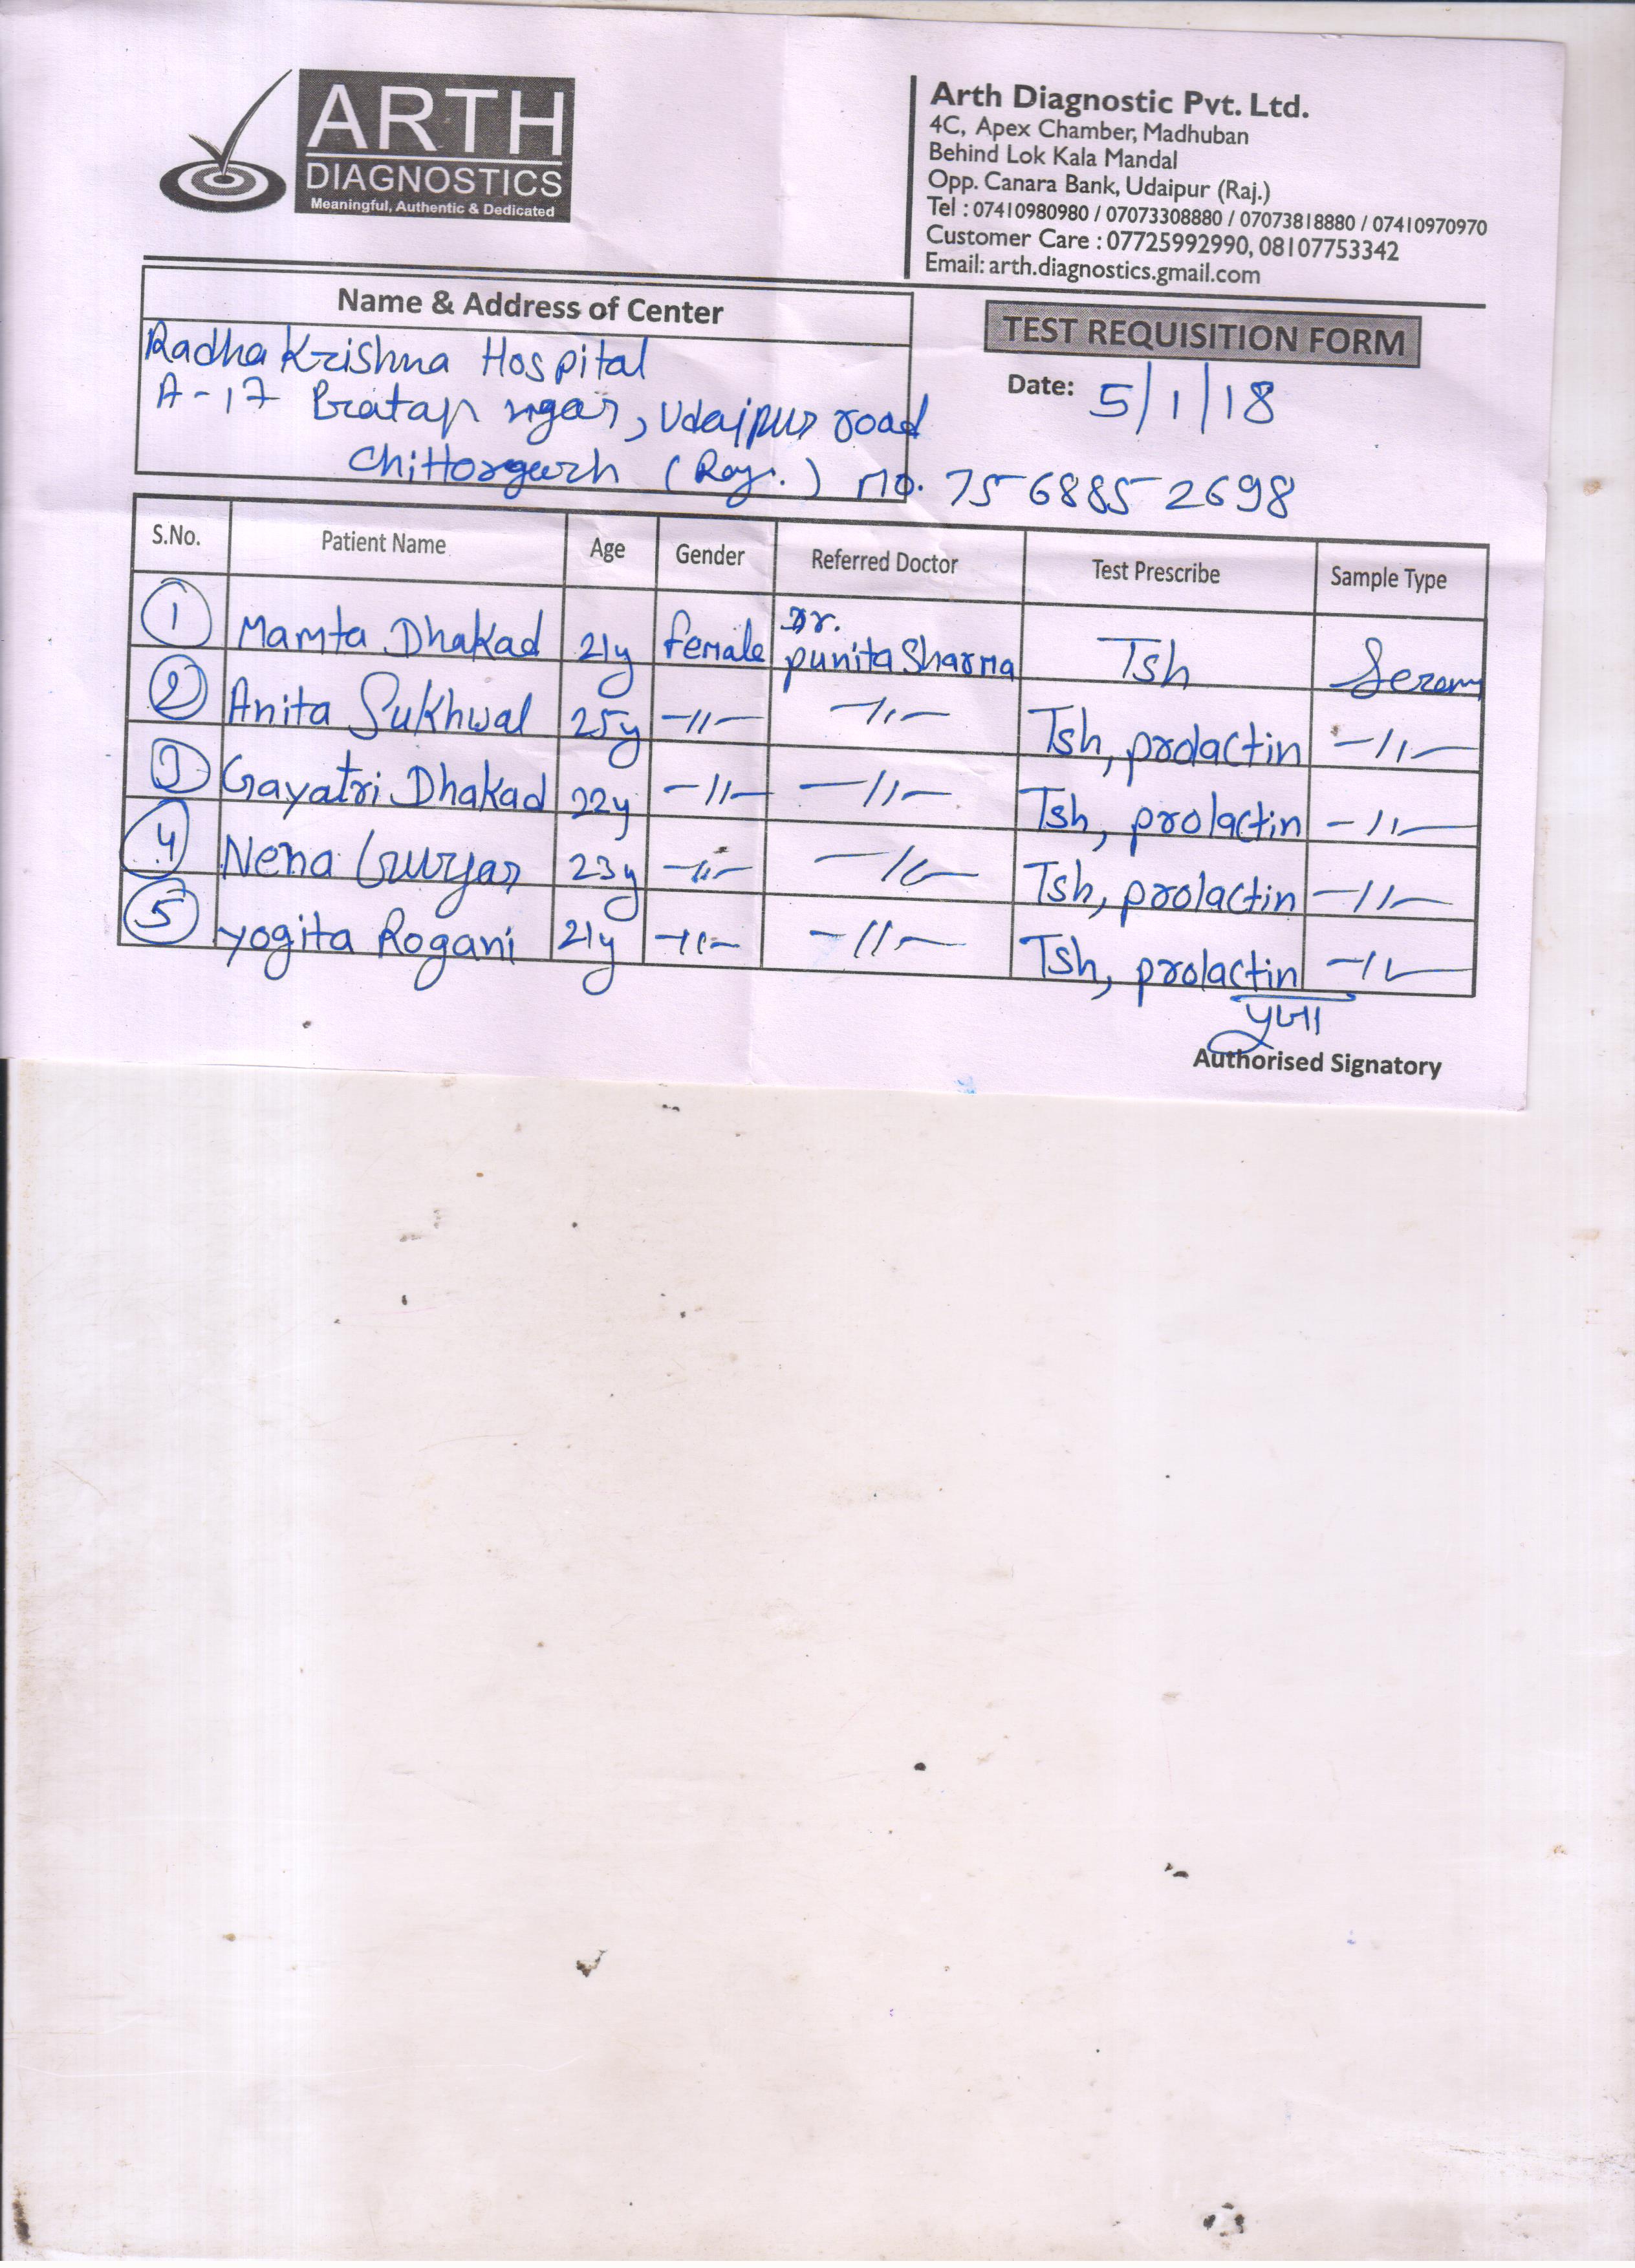 ARTH
DIAGNOSTICS
Meaningful, Authentic & Dedicated
Arth Diagnostic Pvt. Ltd.
4C, Apex Chamber, Madhuban
Behind Lok Kala Mandal
Opp. Canara Bank, Udaipur (Raj.)
Tel : 07410980980 / 07073308880 / 07073818880 / 07410970970
Customer Care : 07725992990, 08107753342
Email: arth.diagnostics.gmail.com
Name & Address of Center
Radha Krishna Hospital
A-17 Pratap ngar, Udaipur road
Chittorgarh (Raj.) no. 7568852698
TEST REQUISITION FORM
Date: 5/1/18
S.No. Patient Name Age Gender Referred Doctor Test Prescribe Sample Type
1 Mamta Dhakad 21y female Dr. punita Sharma Tsh Serom
2 Anita Sukhwal 25y -11- -11- Tsh, prolactin -11-
3 Gayatri Dhakad 22y -11- -11- Tsh, prolactin -11-
4 Nena Gurjar 23y -11- -11- Tsh, prolactin -11-
5 yogita Rogani 21y -11- -11- Tsh, prolactin -11-
पुजा
Authorised Signatory